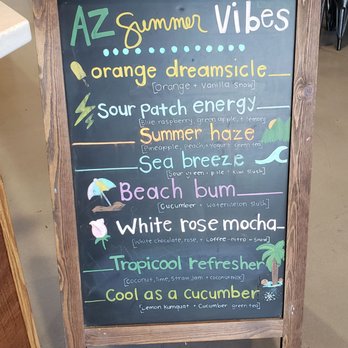 AZ Summer Vibes
orange dreamsicle
[Orange + Vanilla Snow]
Sour Patch energy
[Blue raspberry, green apple, + lemon]
Summer haze
[Pineapple, peach + Yogurt green tea]
Sea breeze
[Sour green apple + Kiwi Slush]
Beach bum
[Cucumber + Watermelon Slush]
White rose mocha
[White chocolate, rose, + Coffee - nitro + Snow]
Tropicool refresher
[Coconut, lime, Straw. Jam +
Cool as a cucumber
[Lemon Kumquat + Cucumber green tea]